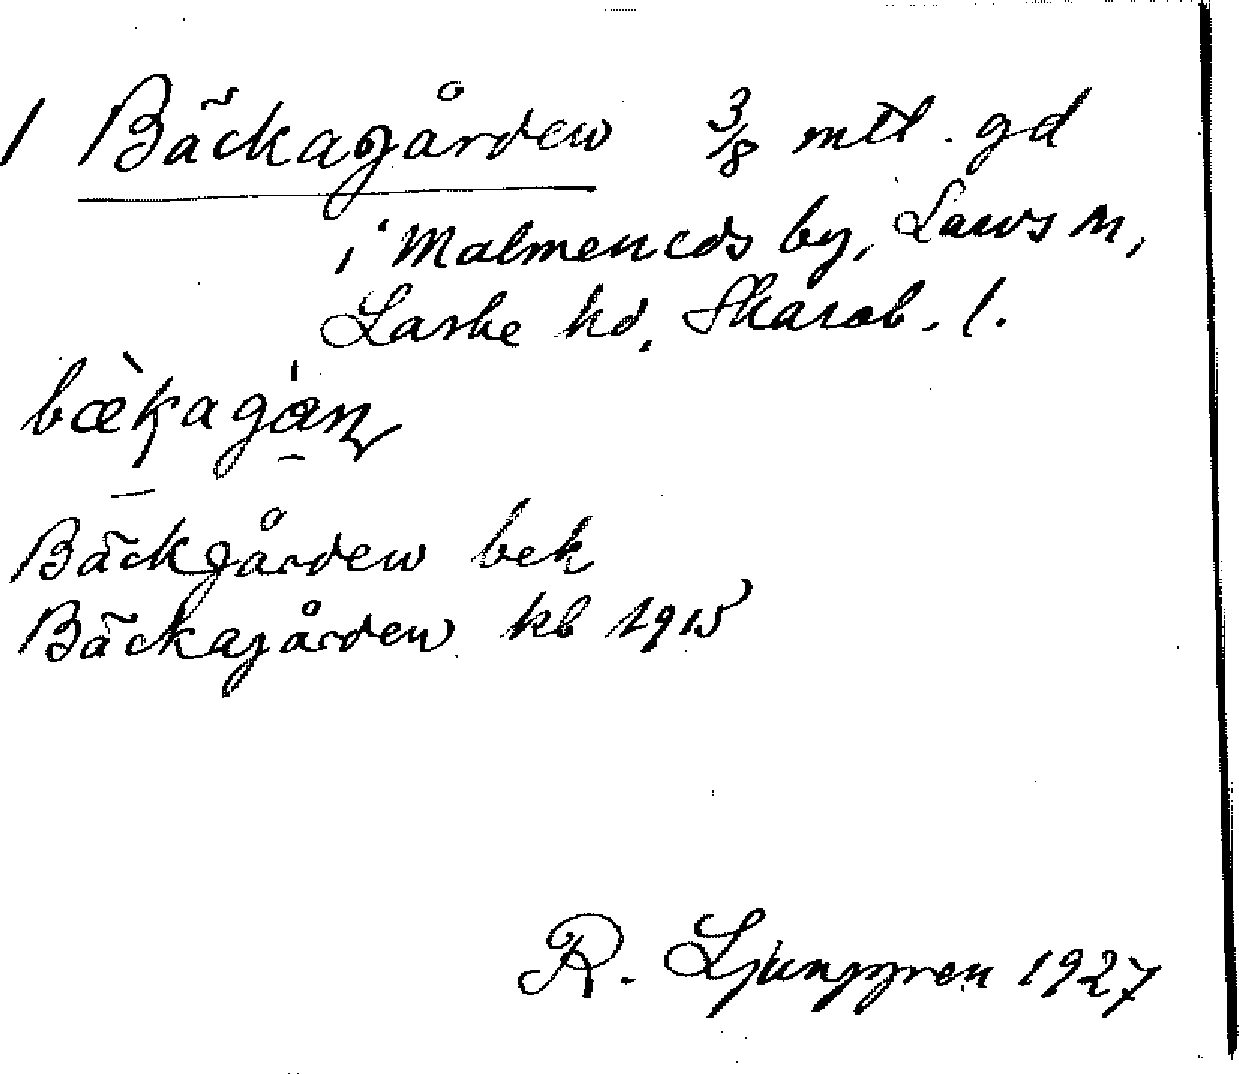 1 Bäckagården 3/8 mtl. gd
i Malmeneds by, Lavs sn,
Laske hd, Skarab. l.
bækagán
Bäckgården bek
Bäckagården kb 1915
R. Ljunggren 1927